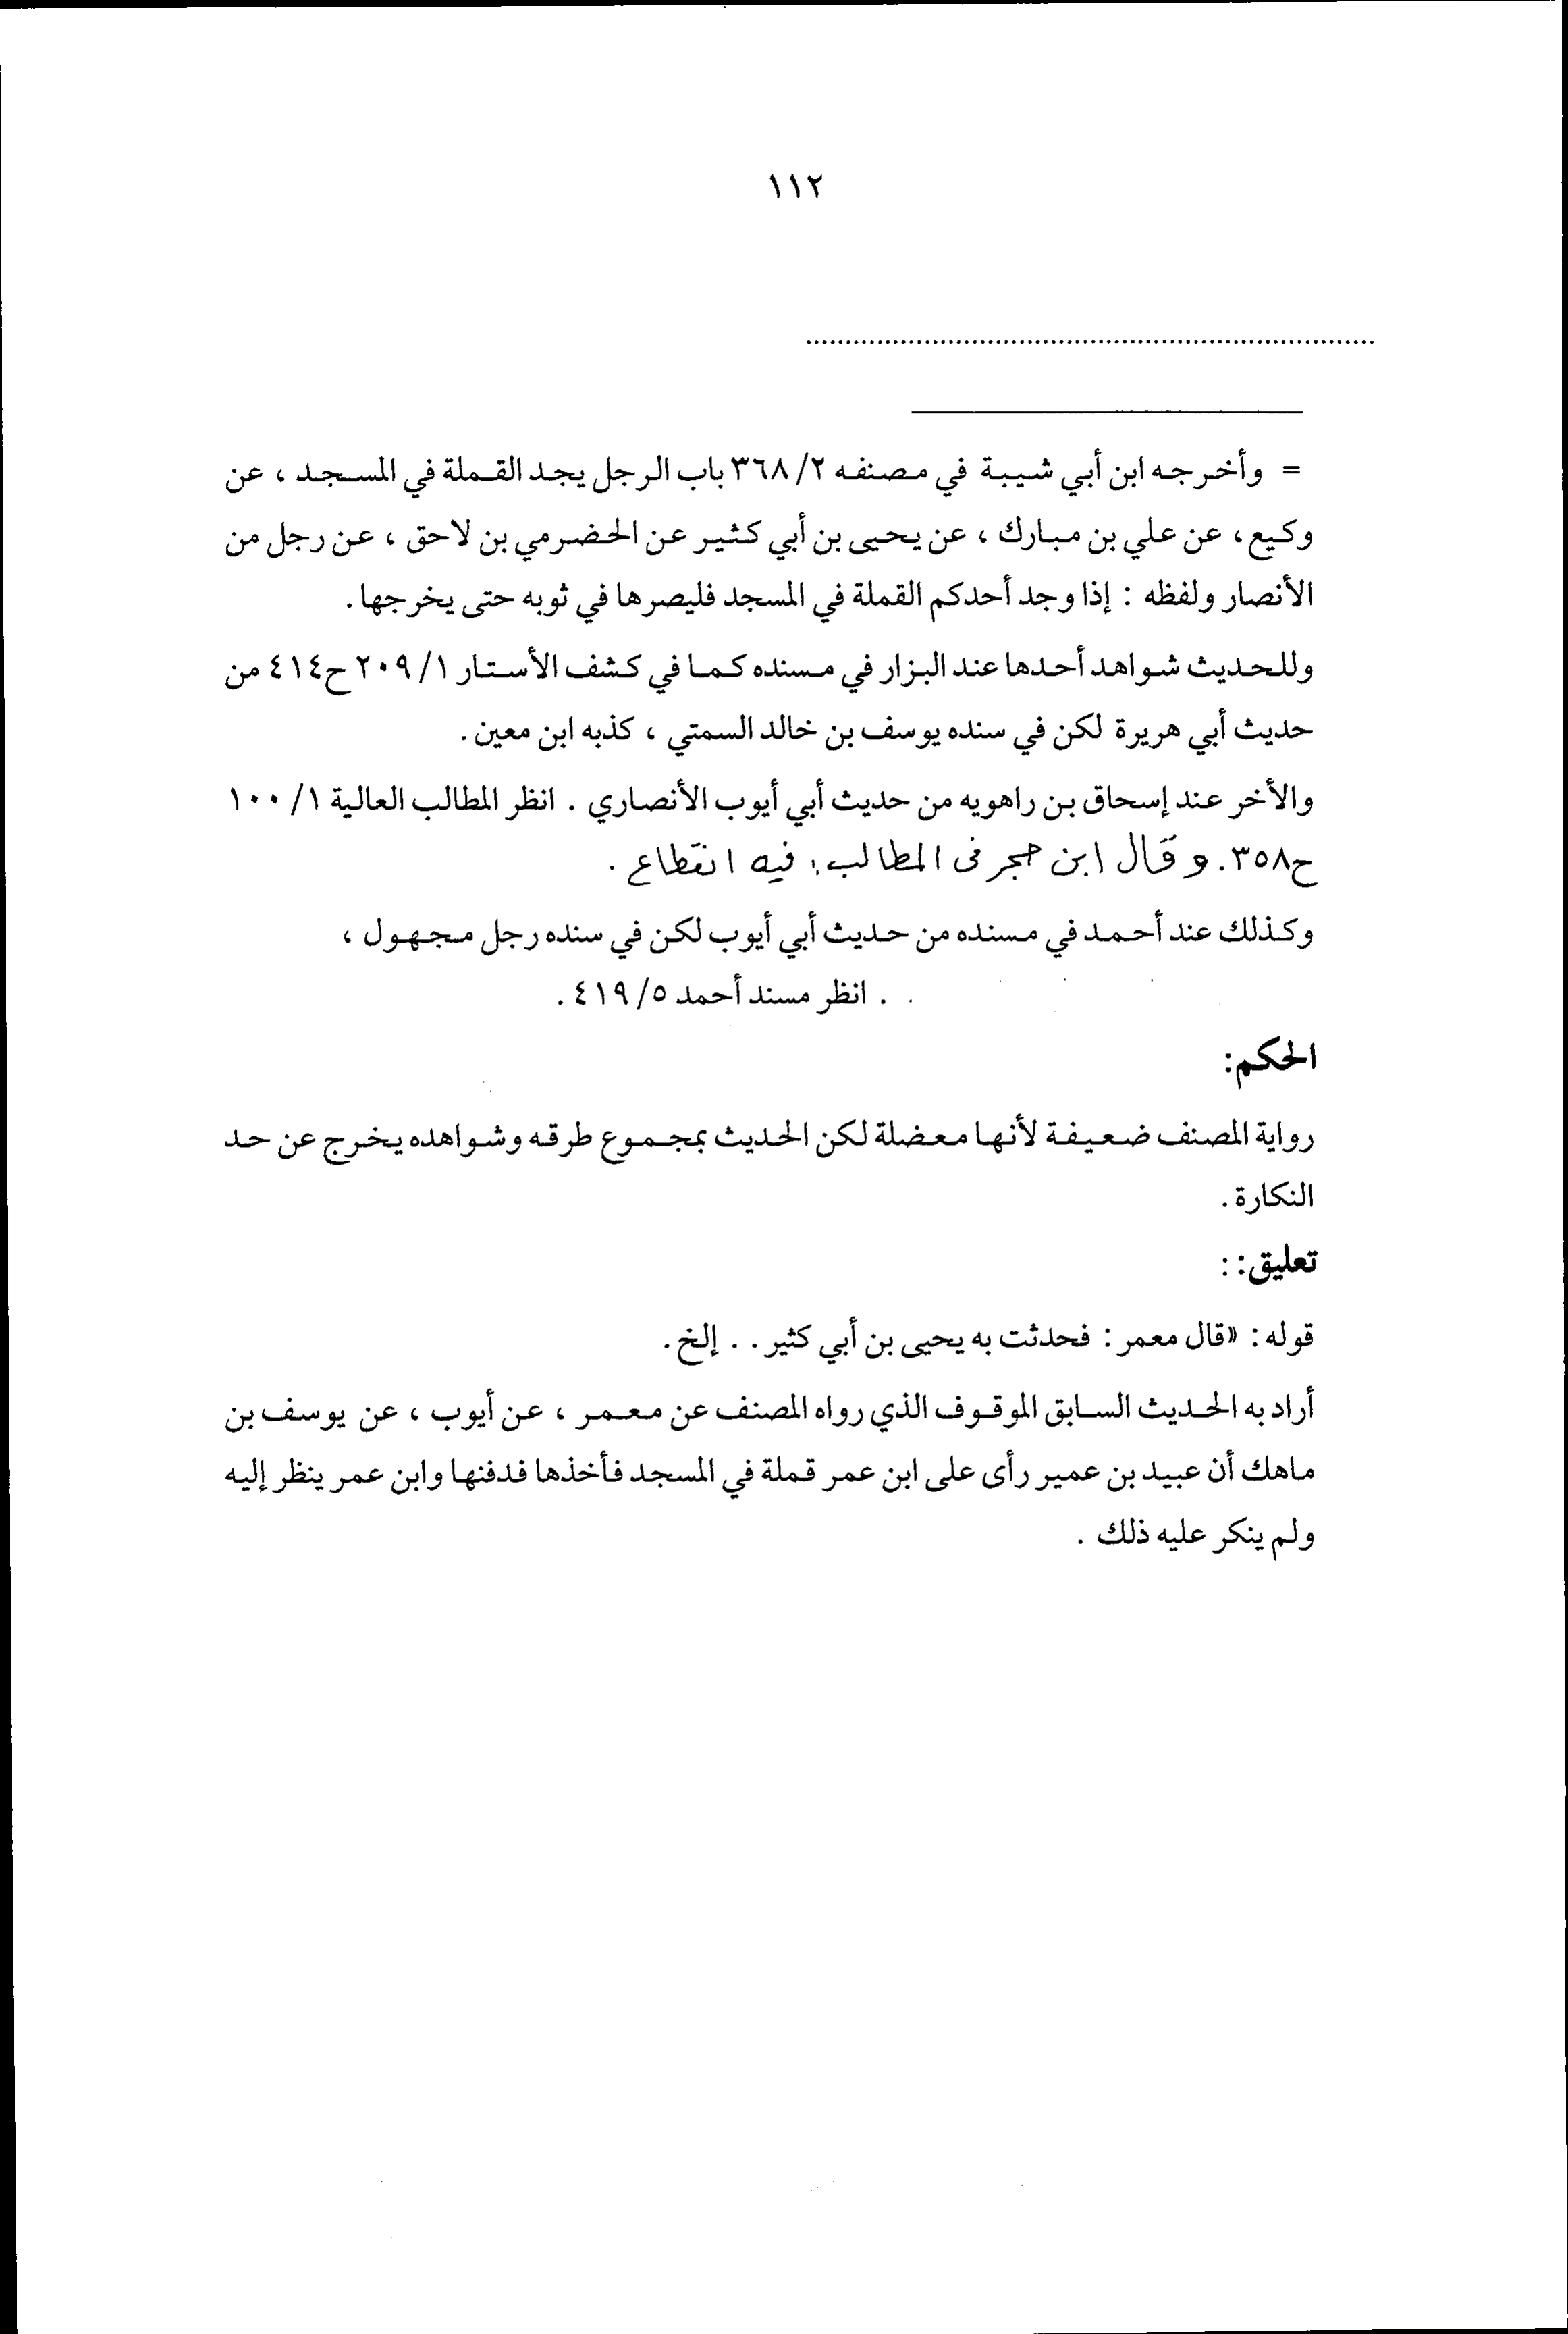 ١١٢
..........................................................................
= وأخرجه ابن أبي شيبة في مصنفه ٢/ ٣٦٨ باب الرجل يجد القملة في المسجد ، عن
وكيع، عن علي بن مبارك ، عن يحيى بن أبي كثير عن الحضرمي بن لاحق ، عن رجل من
الأنصار ولفظه : إذا وجد أحدكم القملة في المسجد فليصرها في ثوبه حتى يخرجها.
وللحديث شواهد أحدها عند البزار في مسنده كما في كشف الأستار ١/ ٢٠٩ ح٤١٤ من
حديث أبي هريرة لكن في سنده يوسف بن خالد السمتي ، كذبه ابن معين.
والأخر عند إسحاق بن راهويه من حديث أبي أيوب الأنصاري . انظر المطالب العالية ١/ ١٠٠
ح٣٥٨. وقال ابن حجر فى المطالب: فيه انقطاع .
وكذلك عند أحمد في مسنده من حديث أبي أيوب لكن في سنده رجل مجهول ،
. . انظر مسند أحمد ٥/ ٤١٩ .
الحكم:
رواية المصنف ضعيفة لأنها معضلة لكن الحديث بمجموع طرقه وشواهده يخرج عن حد
النكارة .
تعليق: :
قوله : «قال معمر : فحدثت به يحيى بن أبي كثير . . إلخ.
أراد به الحديث السابق الموقوف الذي رواه المصنف عن معمر ، عن أيوب ، عن يوسف بن
ماهك أن عبيد بن عمير رأى على ابن عمر قملة في المسجد فأخذها فدفنها وابن عمر ينظر إليه
ولم ينكر عليه ذلك .